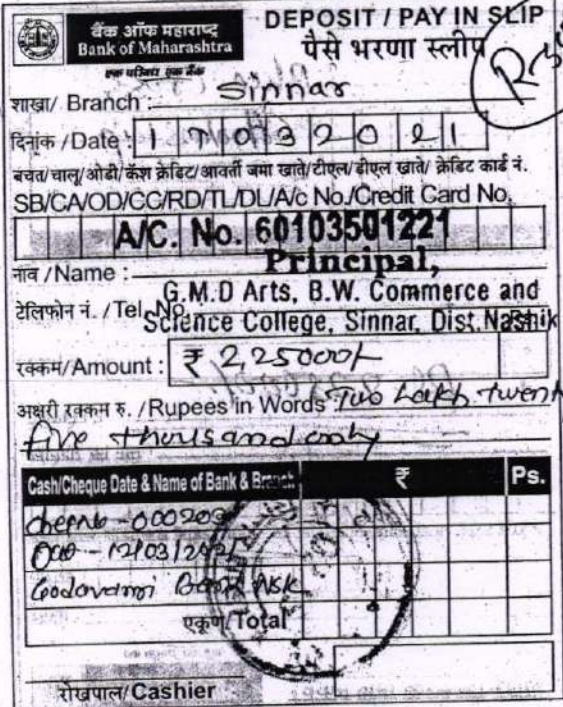 बैंक ऑफ महाराष्ट्र
Bank of Maharashtra
एक परिवार एक बैंक
DEPOSIT / PAY IN SLIP
पैसे भरणा स्लीप
शाखा/ Branch : Sinnar
दिनांक /Date : 1 7 0 3 2 0 2 1
बचत/चालू/ओडी/कॅश क्रेडिट/आवर्ती जमा खाते/टीएल/डीएल खाते/ क्रेडिट कार्ड नं.
SB/CA/OD/CC/RD/TL/DL/A/c No./Credit Card No.
A/C. No. 60103501221
Principal,
नाव /Name :
G.M.D Arts, B.W. Commerce and
टेलिफोन नं. /Tel. No.
Science College, Sinnar, Dist. Nashik
रक्कम/Amount : ₹ 2,25000/-
अक्षरी रक्कम रु. /Rupees in Words Two Lakh Twent
five thousand only
Cash/Cheque Date & Name of Bank & Branch ₹ Ps.
000209
12/03/2021
Godavari Bank NSK
एकूण/Total
रोखपाल/Cashier